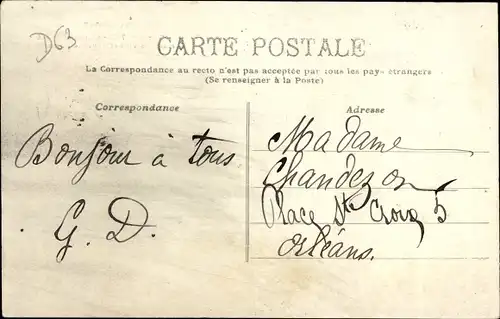 D63
CARTE POSTALE
La Correspondance au recto n'est pas acceptée par tous les pays étrangers
(Se renseigner à la Poste)
Correspondance
Adresse
Bonjour à tous
G. D.
Madame
Chandezon
Place Ste Croix 5
Orléans.